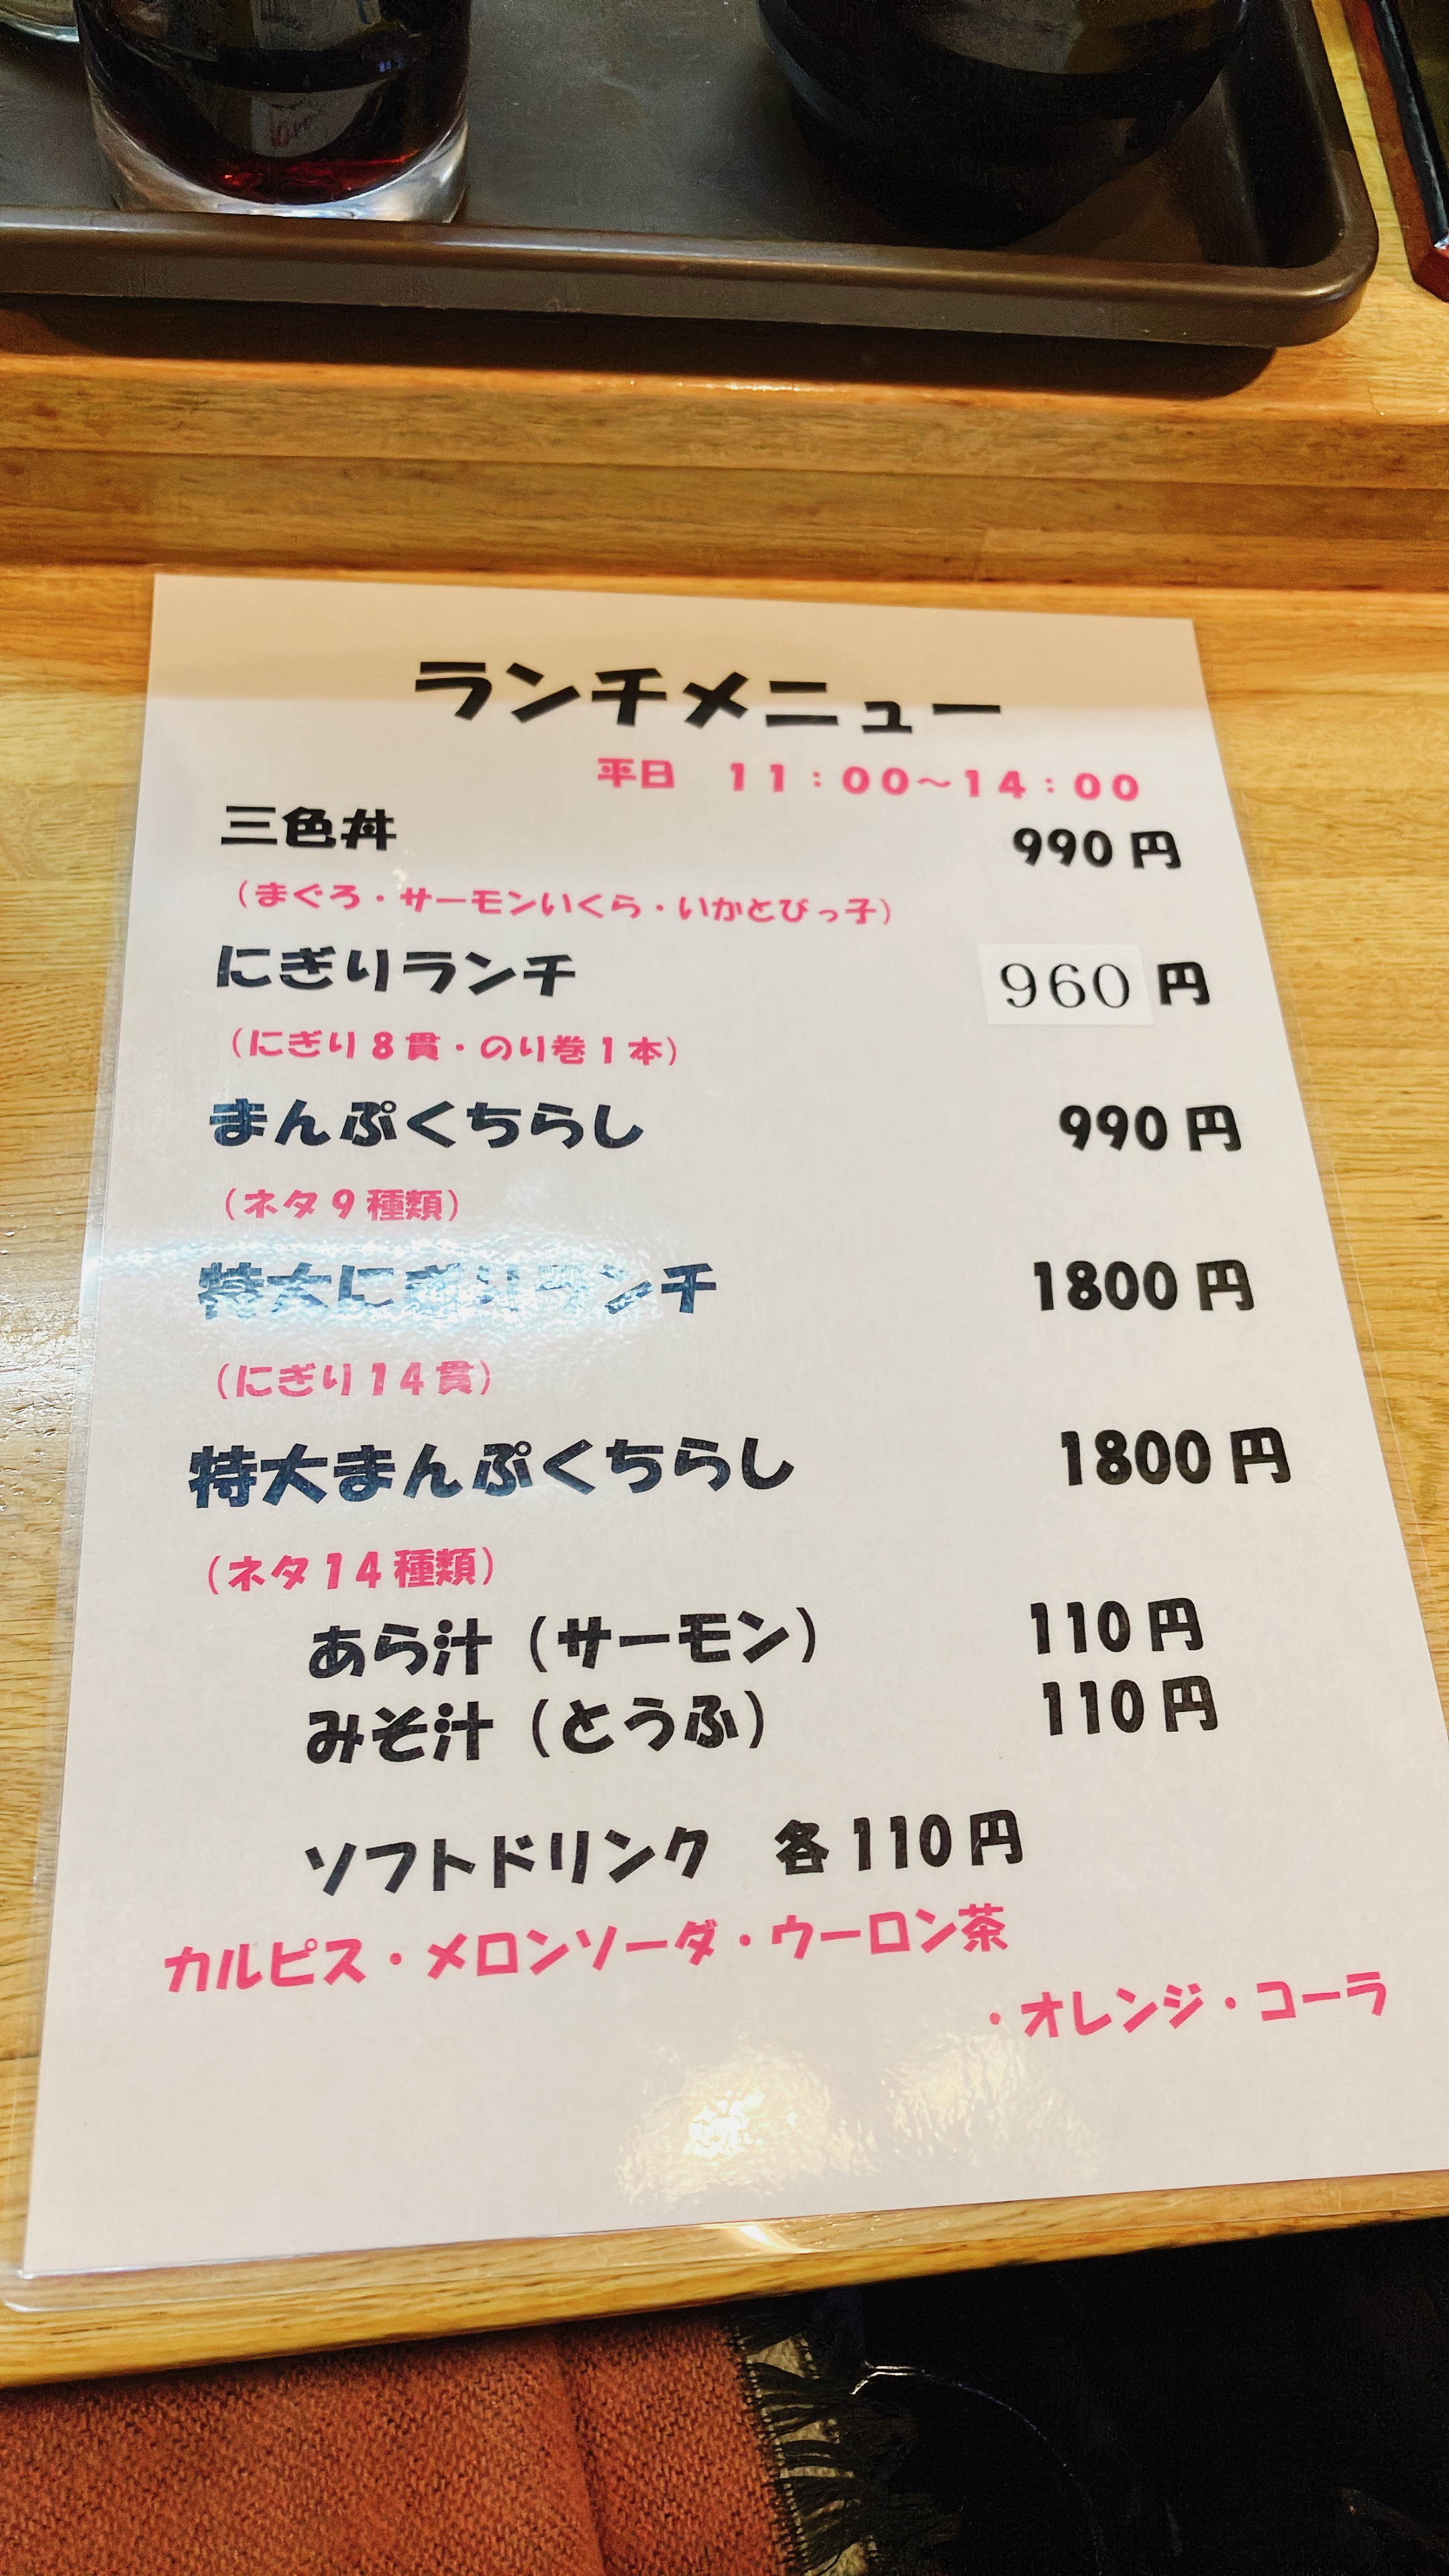 ランチメニュー
平日　11：00～14：00
三色丼 990円
（まぐろ・サーモンいくら・いかとびっ子）
にぎりランチ 960円
（にぎり8貫・のり巻1本）
まんぷくちらし 990円
（ネタ9種類）
特大にぎりランチ 1800円
（にぎり14貫）
特大まんぷくちらし 1800円
（ネタ14種類）
あら汁（サーモン） 110円
みそ汁（とうふ） 110円
ソフトドリンク　各110円
カルピス・メロンソーダ・ウーロン茶
・オレンジ・コーラ